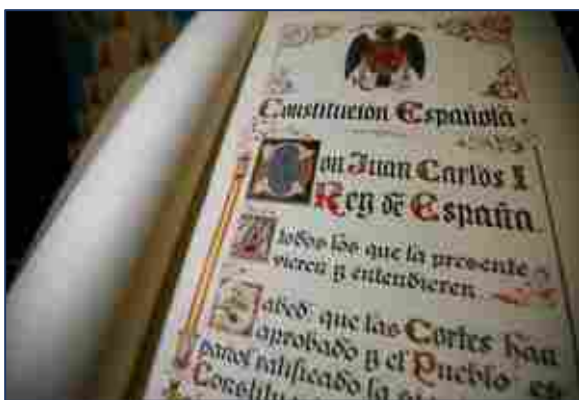 Constitucion Española.
Don Juan Carlos I
Rey de España.
A todos los que la presente
vieren y entendieren.
Sabed: que las Cortes han
aprobado y el Pueblo es
pañol ratificado la
Constitu